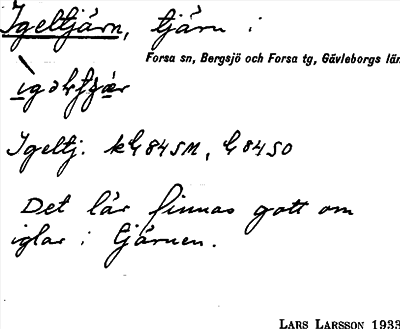 Igeltjärn, tjärn i
Forsa sn, Bergsjö och Forsa tg, Gävleborgs län
Igeltj. k G84SM, G84SO
Det lär finnas gott om
iglar i tjärnen.
LARS LARSSON 1933